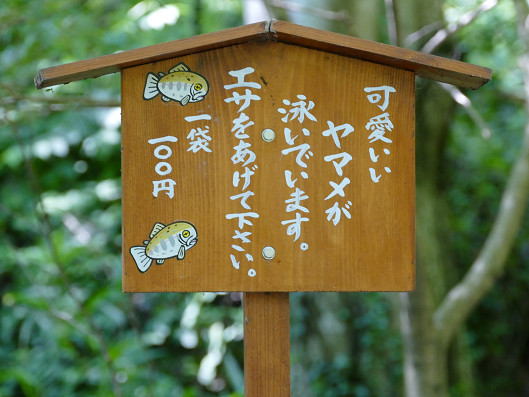 可愛いい
ヤマメが
泳いでいます。
エサをあげて下さい。
一袋
一〇〇円